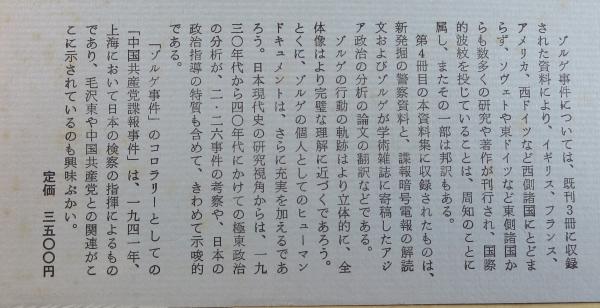 ゾルゲ事件については、既刊3冊に収録
された資料により、イギリス、フランス、
アメリカ、西ドイツなど西側諸国にとどま
らず、ソヴェトや東ドイツなど東側諸国か
らも数多くの研究や著作が刊行され、国際
的波紋を投じていることは、周知のことに
属し、またその一部は邦訳もある。
第4冊目の本資料集に収録されたものは、
新発掘の警察資料と、諜報暗号電報の解読
文およびゾルゲが学術雑誌に寄稿したアジ
ア政治の分析の論文の翻訳などである。
ゾルゲの行動の軌跡はより立体的に、全
体像はより完璧な理解に近づくであろう。
とくに、ゾルゲの個人としてのヒューマン
ドキュメントは、さらに充実を加えるであ
ろう。日本現代史の研究視角からは、一九
三〇年代から四〇年代にかけての極東政治
の分析が、二・二六事件の考察や、日本の
政治指導の特質も含めて、きわめて示唆的
である。
「ゾルゲ事件」のコロラリーとしての
「中国共産党諜報事件」は、一九四一年、
上海において日本の検察の指揮によるもの
であり、毛沢東や中国共産党との関連がこ
こに示されているのも興味ぶかい。
定価 三五〇〇円